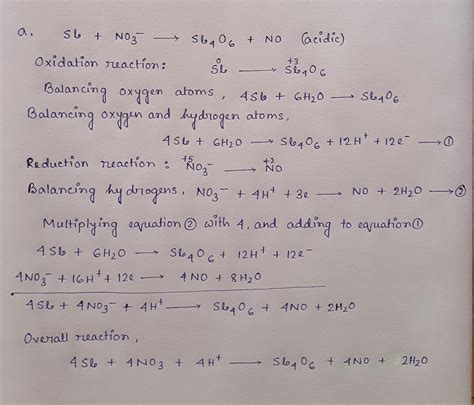 a. Sb + NO₃⁻ ⟶ Sb₄O₆ + NO (acidic)
Oxidation reaction: Sb⁰ ⟶ Sb₄⁺³O₆
Balancing oxygen atoms, 4Sb + 6H₂O ⟶ Sb₄O₆.
Balancing oxygen and hydrogen atoms,
4Sb + 6H₂O ⟶ Sb₄O₆ + 12H⁺ + 12e⁻ ⟶ ①
Reduction reaction: ⁺⁵NO₃⁻ ⟶ ⁺²NO
Balancing hydrogens, NO₃⁻ + 4H⁺ + 3e ⟶ NO + 2H₂O ⟶ ②
Multiplying equation ② with 4, and adding to equation ①
4Sb + 6H₂O ⟶ Sb₄O₆ + 12H⁺ + 12e⁻
4NO₃⁻ + 16H⁺ + 12e ⟶ 4NO + 8H₂O
4Sb + 4NO₃⁻ + 4H⁺ ⟶ Sb₄O₆ + 4NO + 2H₂O
Overall reaction,
4Sb + 4NO₃ + 4H⁺ ⟶ Sb₄O₆ + 4NO + 2H₂O